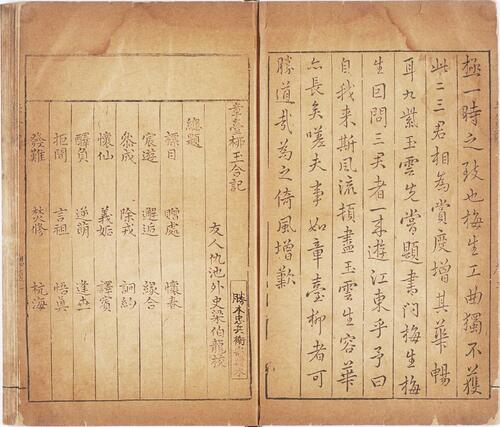 極一時之致也梅生工曲獨不獲
此二三君相為賞度增其華暢
耳九紫玉雲先嘗題書門梅生梅
生因問三君者一來遊江東乎予曰
自我來斯風流頓盡玉雲生容華
亦長矣嗟夫事如章臺柳者可
勝道哉為之倚風增歎
章臺柳玉合記
友人仇池外史梁伯龍校
勝木忠兵衛
總題
標目 贈處 懷春
宸遊 邂逅 緣合
參成 除戎 訂約
懷仙 義姤 譯賓
醳負 逆萌
拒間 言祖 悟真
發難 焚修 杭海